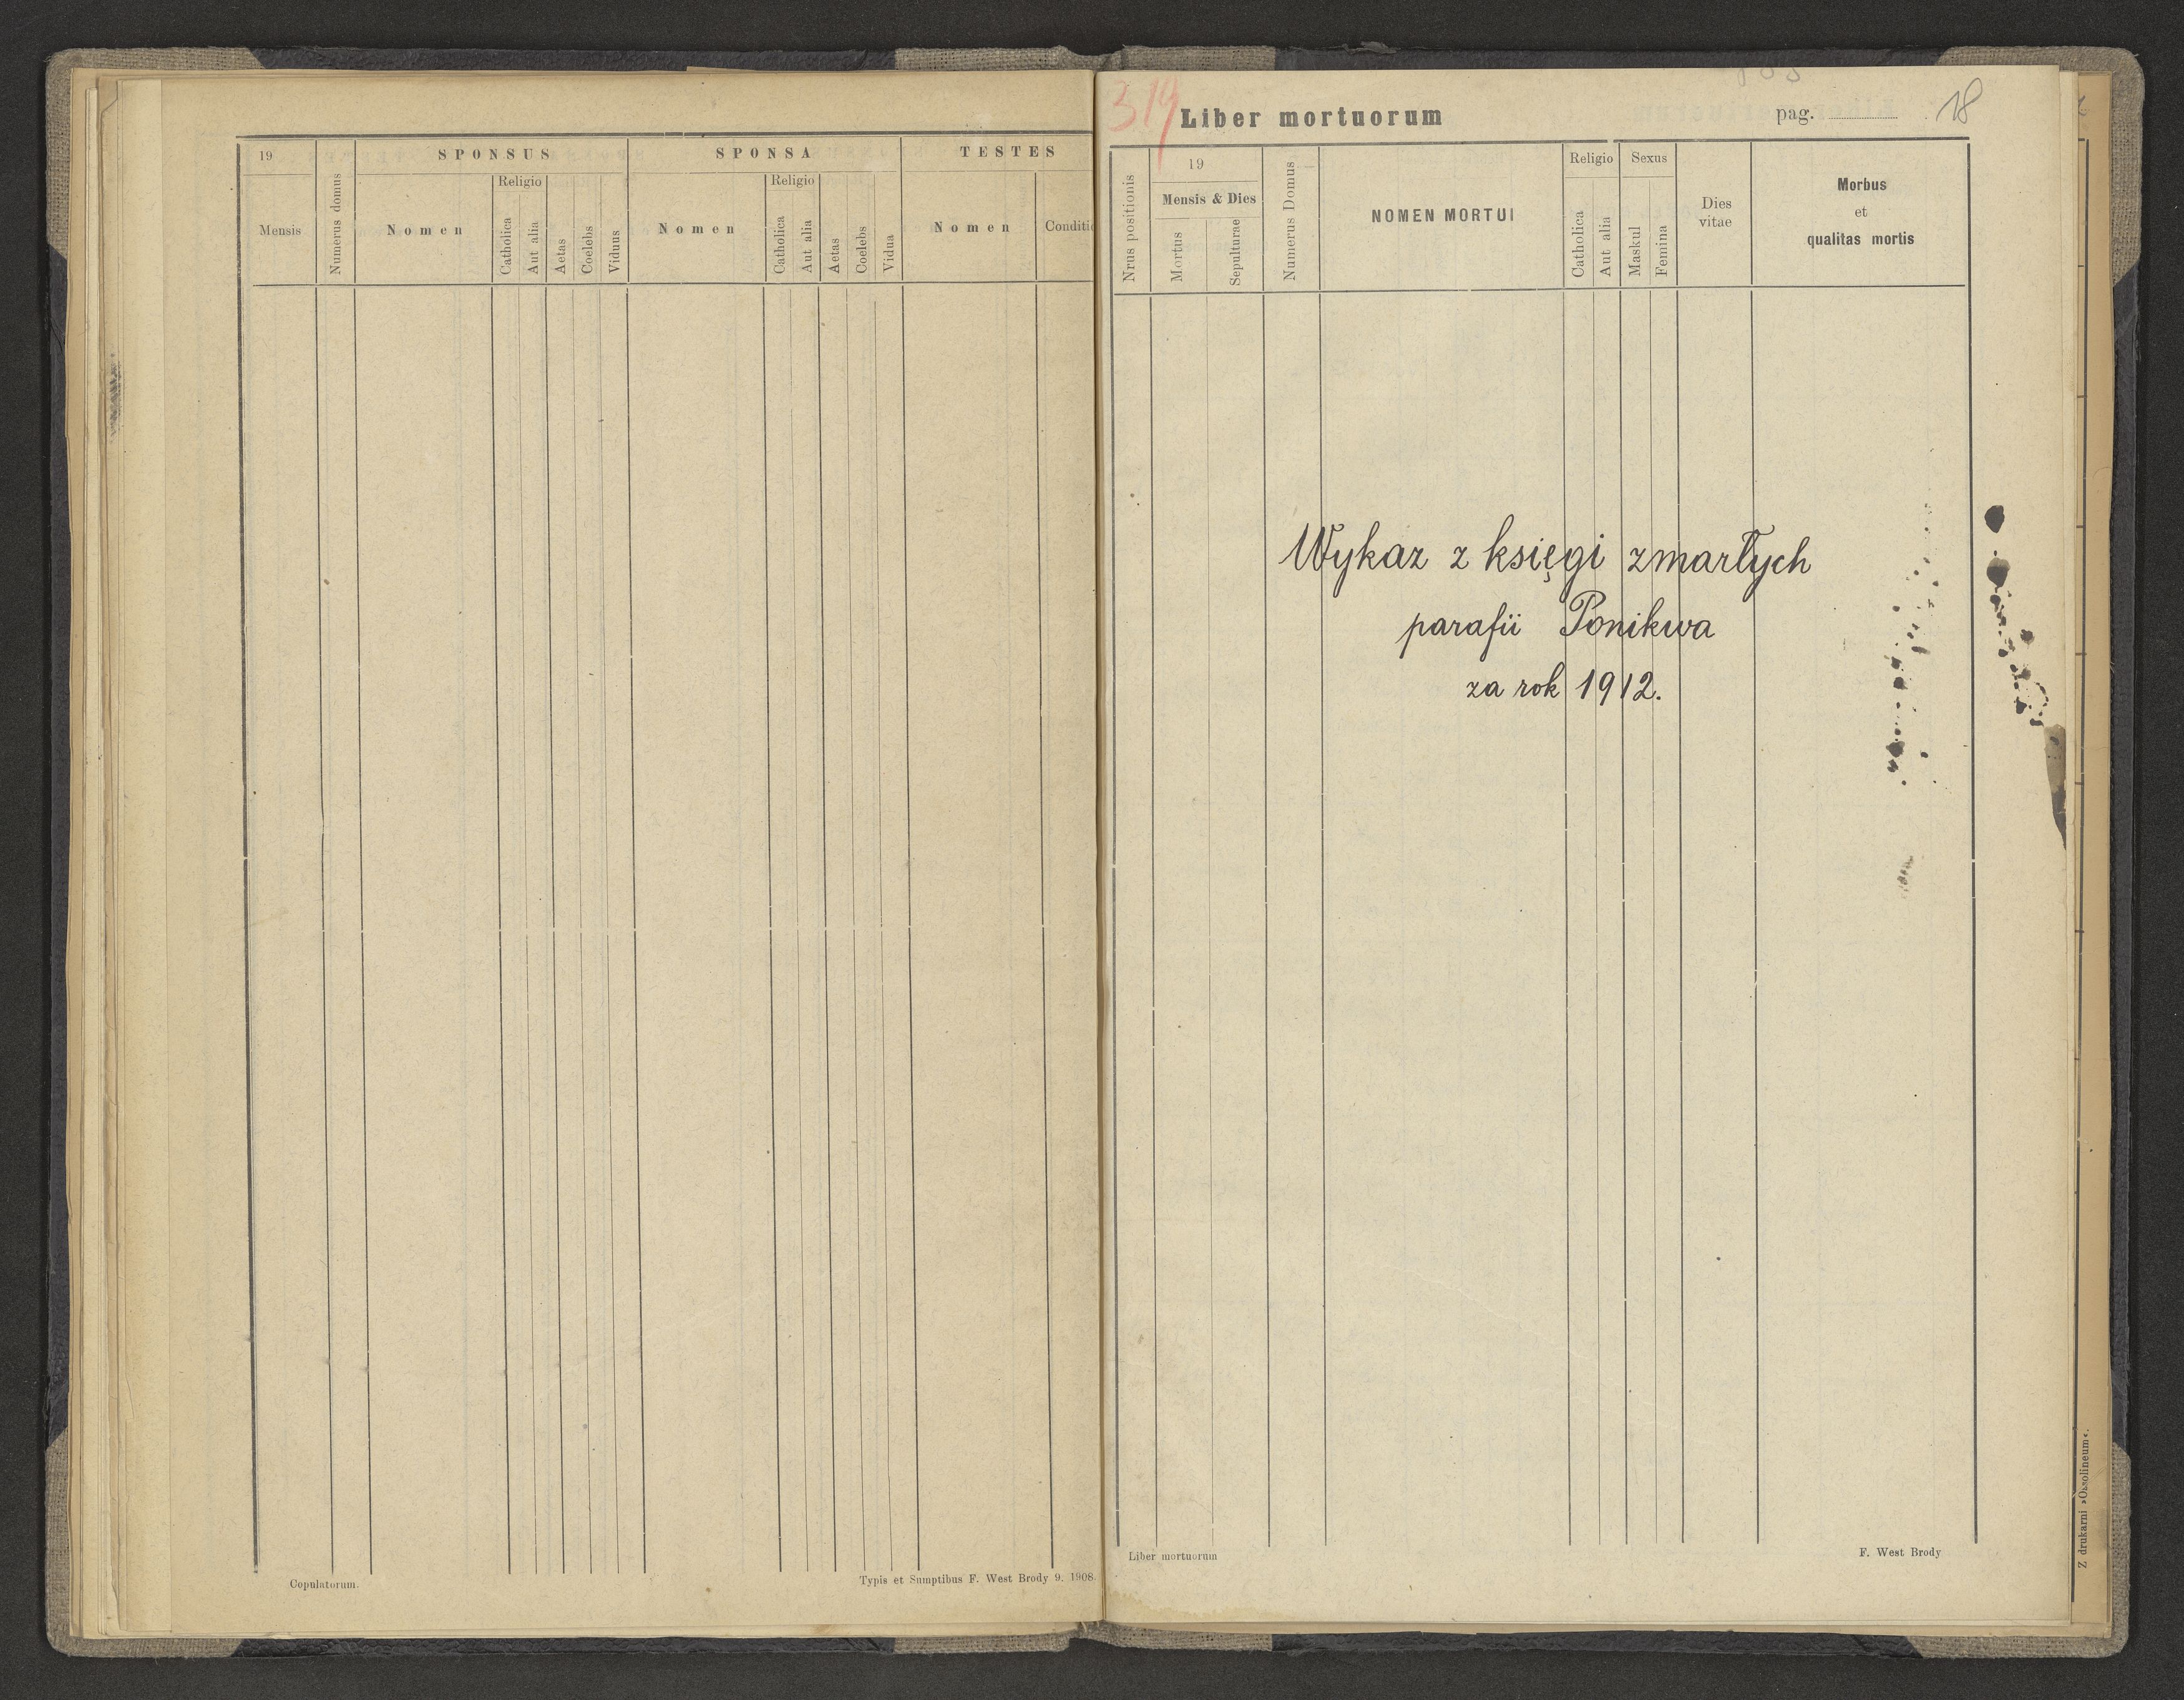 19
Mensis
Numerus domus
SPONSUS
Nomen
Religio
Catholica
Aut alia
Aetas
Coelebs
Viduus
SPONSA
Nomen
Religio
Catholica
Aut alia
Aetas
Coelebs
Vidua
TESTES
Nomen
Conditio
Copulatorum.
Typis et Sumptibus F. West Brody 9. 1908.
319
Liber mortuorum
pag.
18
Nrus positionis
19
Mensis & Dies
Mortus
Sepulturae
Numerus Domus
NOMEN MORTUI
Religio
Catholica
Aut alia
Sexus
Maskul
Femina
Dies
vitae
Morbus
et
qualitas mortis
Wykaz z księgi zmarłych
parafii Ponikwa
za rok 1912.
Liber mortuorum
F. West Brody
Z drukarni »Ossolineum«.